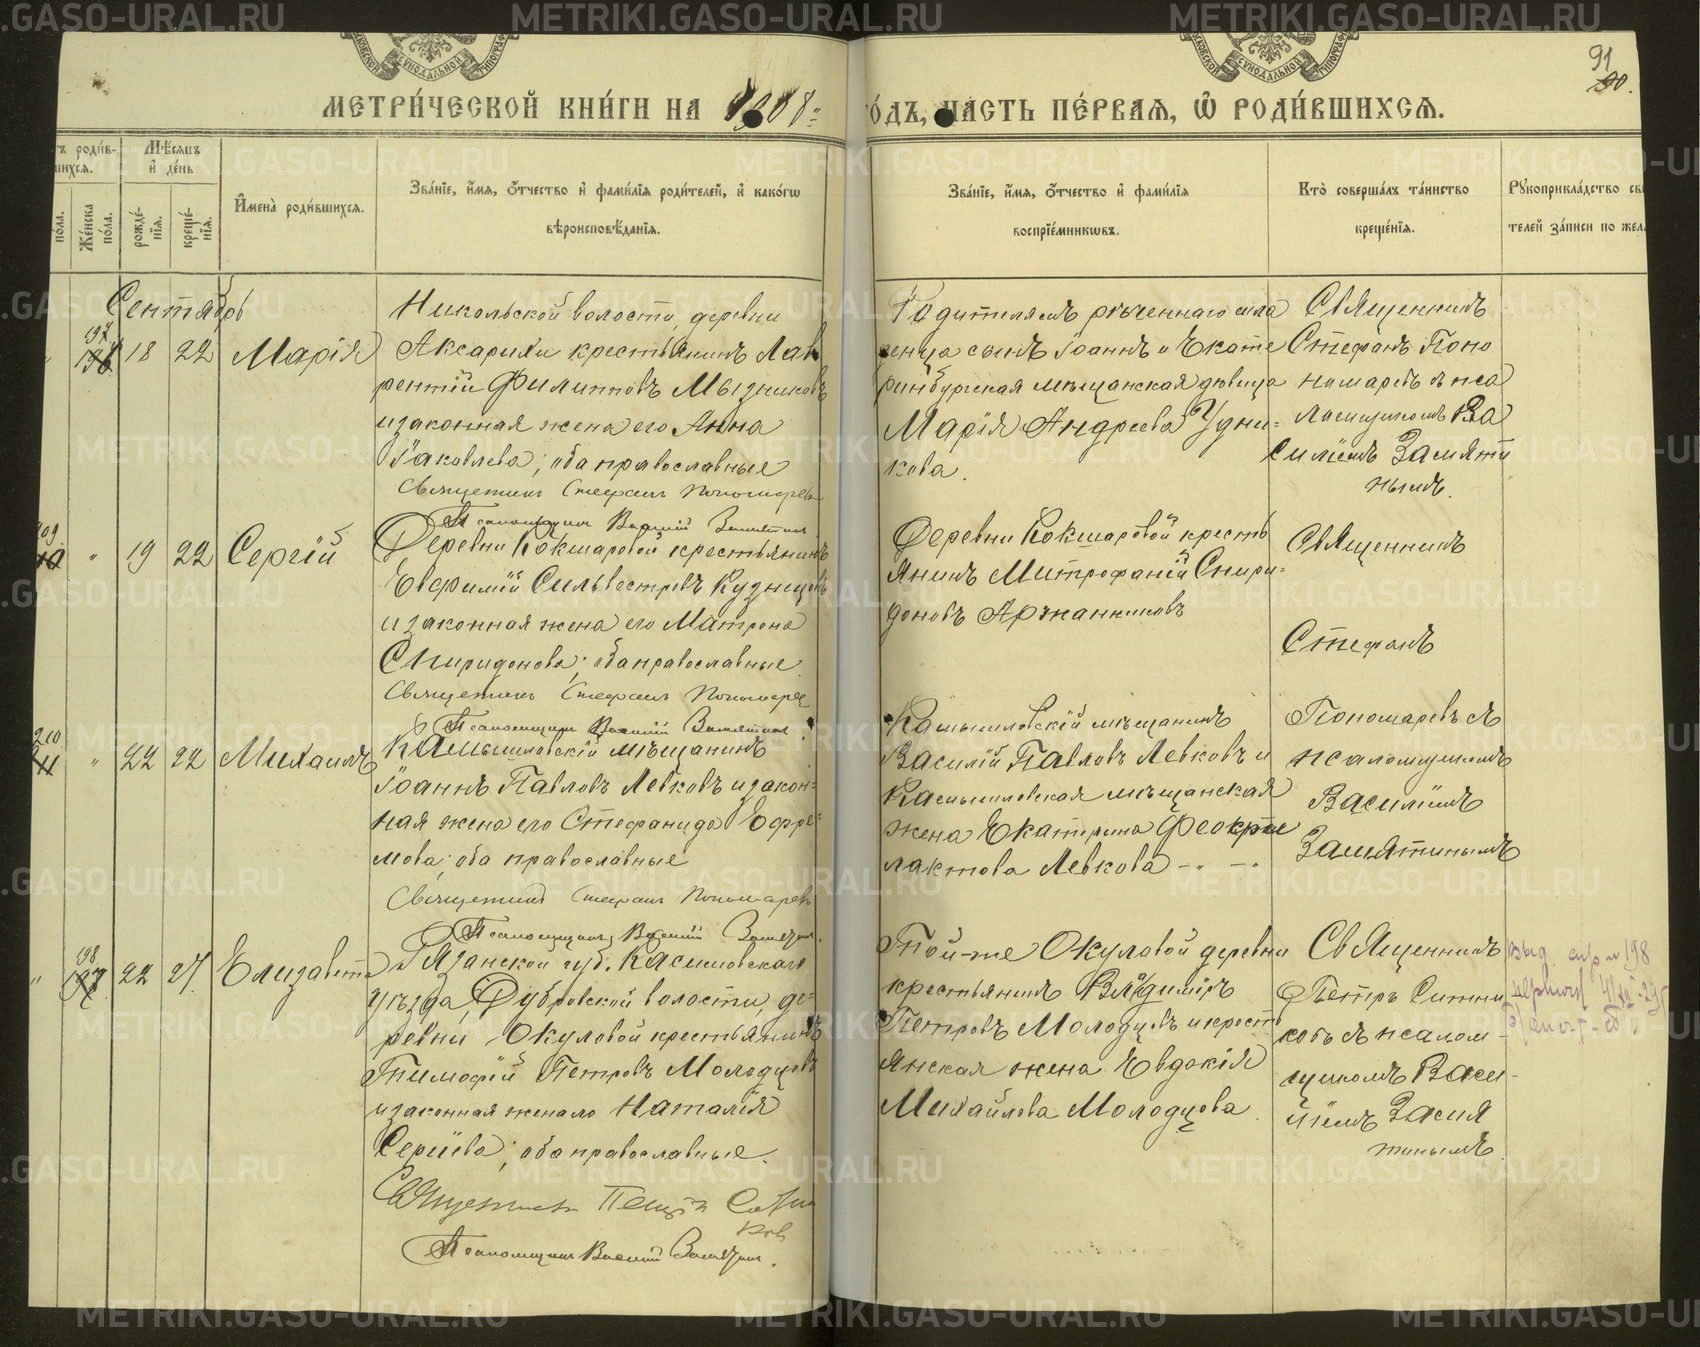 91
90.
МЕТРИ́ЧЕСКОЙ КНИ́ГИ НА 1908 г.
ГО́ДЪ, ЧАСТЬ ПЕ́РВАЯ, Ѡ РОДИ́ВШИХСЯ.
ТЪ РОДИ́В-
ШИХСЯ.
МѢ́СЯЦЪ
И ДЕ́НЬ
ПО́ЛА.
ЖЕ́НСКА
ПО́ЛА.
РОЖДЕ́-
НІЯ.
КРЕЩЕ́-
НІЯ.
ИМЕНА̀ РОДИ́ВШИХСЯ.
ЗВА́НІЕ, И́МЯ, О́ТЧЕСТВО И ФАМИ́ЛІЯ РОДИ́ТЕЛЕЙ, И КАКО́ГѠ
ВѢРОИСПОВѢ́ДАНІЯ.
ЗВА́НІЕ, И́МЯ, О́ТЧЕСТВО И ФАМИ́ЛІЯ
ВОСПРІЕ́МНИКѠВЪ.
КТО̀ СОВЕРША́ЛЪ ТА́ИНСТВО
КРЕЩЕ́НІЯ.
РУКОПРИКЛА́ДСТВО СВИ
ТЕЛЕЙ ЗА́ПИСИ ПО ЖЕЛ
Сентябрь
197
18 22 Марія
Никольской волости, деревни
Аксарихи крестьянинъ Лав
рентій Филипповъ Мызниковъ
и законная жена его Анна
Іаковлева; оба православные
Священникъ Стефанъ Пономаревъ
Псаломщикъ Василій Замятинъ
Родителямъ реченнаго мла
денца сынъ Іоаннъ и Екате
ринбургская мѣщанская дѣвица
Марія Андреева Удни-
кова.
Священникъ
Стефанъ Поно
номаревъ съ пса
ломщикомъ Ва
силіемъ Замяти
нымъ.
209
10 " 19 22 Сергій
Деревни Кокшаровой крестьянинъ
Евфимій Сильвестровъ Кузнецовъ
и законная жена его Матрона
Спиридонова; оба православные
Священникъ Стефанъ Пономарев
Псаломщикъ Василій Замятинъ
Деревни Кокшаровой кресть
янинъ Митрофаній Спири-
доновъ Аржанниковъ
Священникъ
Стефанъ
Пономаревъ съ
псаломщикомъ
Василіемъ
Замятинымъ
210
11 " 22 22 Михаилъ
Камышловскій мѣщанинъ
Іоаннъ Павловъ Левковъ и закон-
ная жена его Стефанида Ефре-
мова; оба православные
Священникъ Стефанъ Пономаревъ
Псаломщикъ Василій Замятинъ.
Камышловскій мѣщанинъ
Василій Павловъ Левковъ и
Камышловская мѣщанская
жена Екатерина Феокти
лактова Левкова -"-
198
197 22 27. Елизавета
Рязанской губ. Касимовскаго
уѣзда, Дубровской волости, де-
ревни Окуловой крестьянинъ
Тимофій Петровъ Молодцовъ
и законная жена его Наталія
Сергіева; оба православные.
Священникъ Петръ Ситни
ковъ
Псаломщикъ Василій Замятинъ.
Той-же Окуловой деревни
крестьянинъ Владиміръ
Петровъ Молодцовъ и кресть
янская жена Евдокія
Михайлова Молодцова.
Священникъ
Петръ Ситни
ковъ съ псалом-
щикомъ Васи-
ліемъ Замя
тинымъ.
METRIKI.GASO-URAL.RU